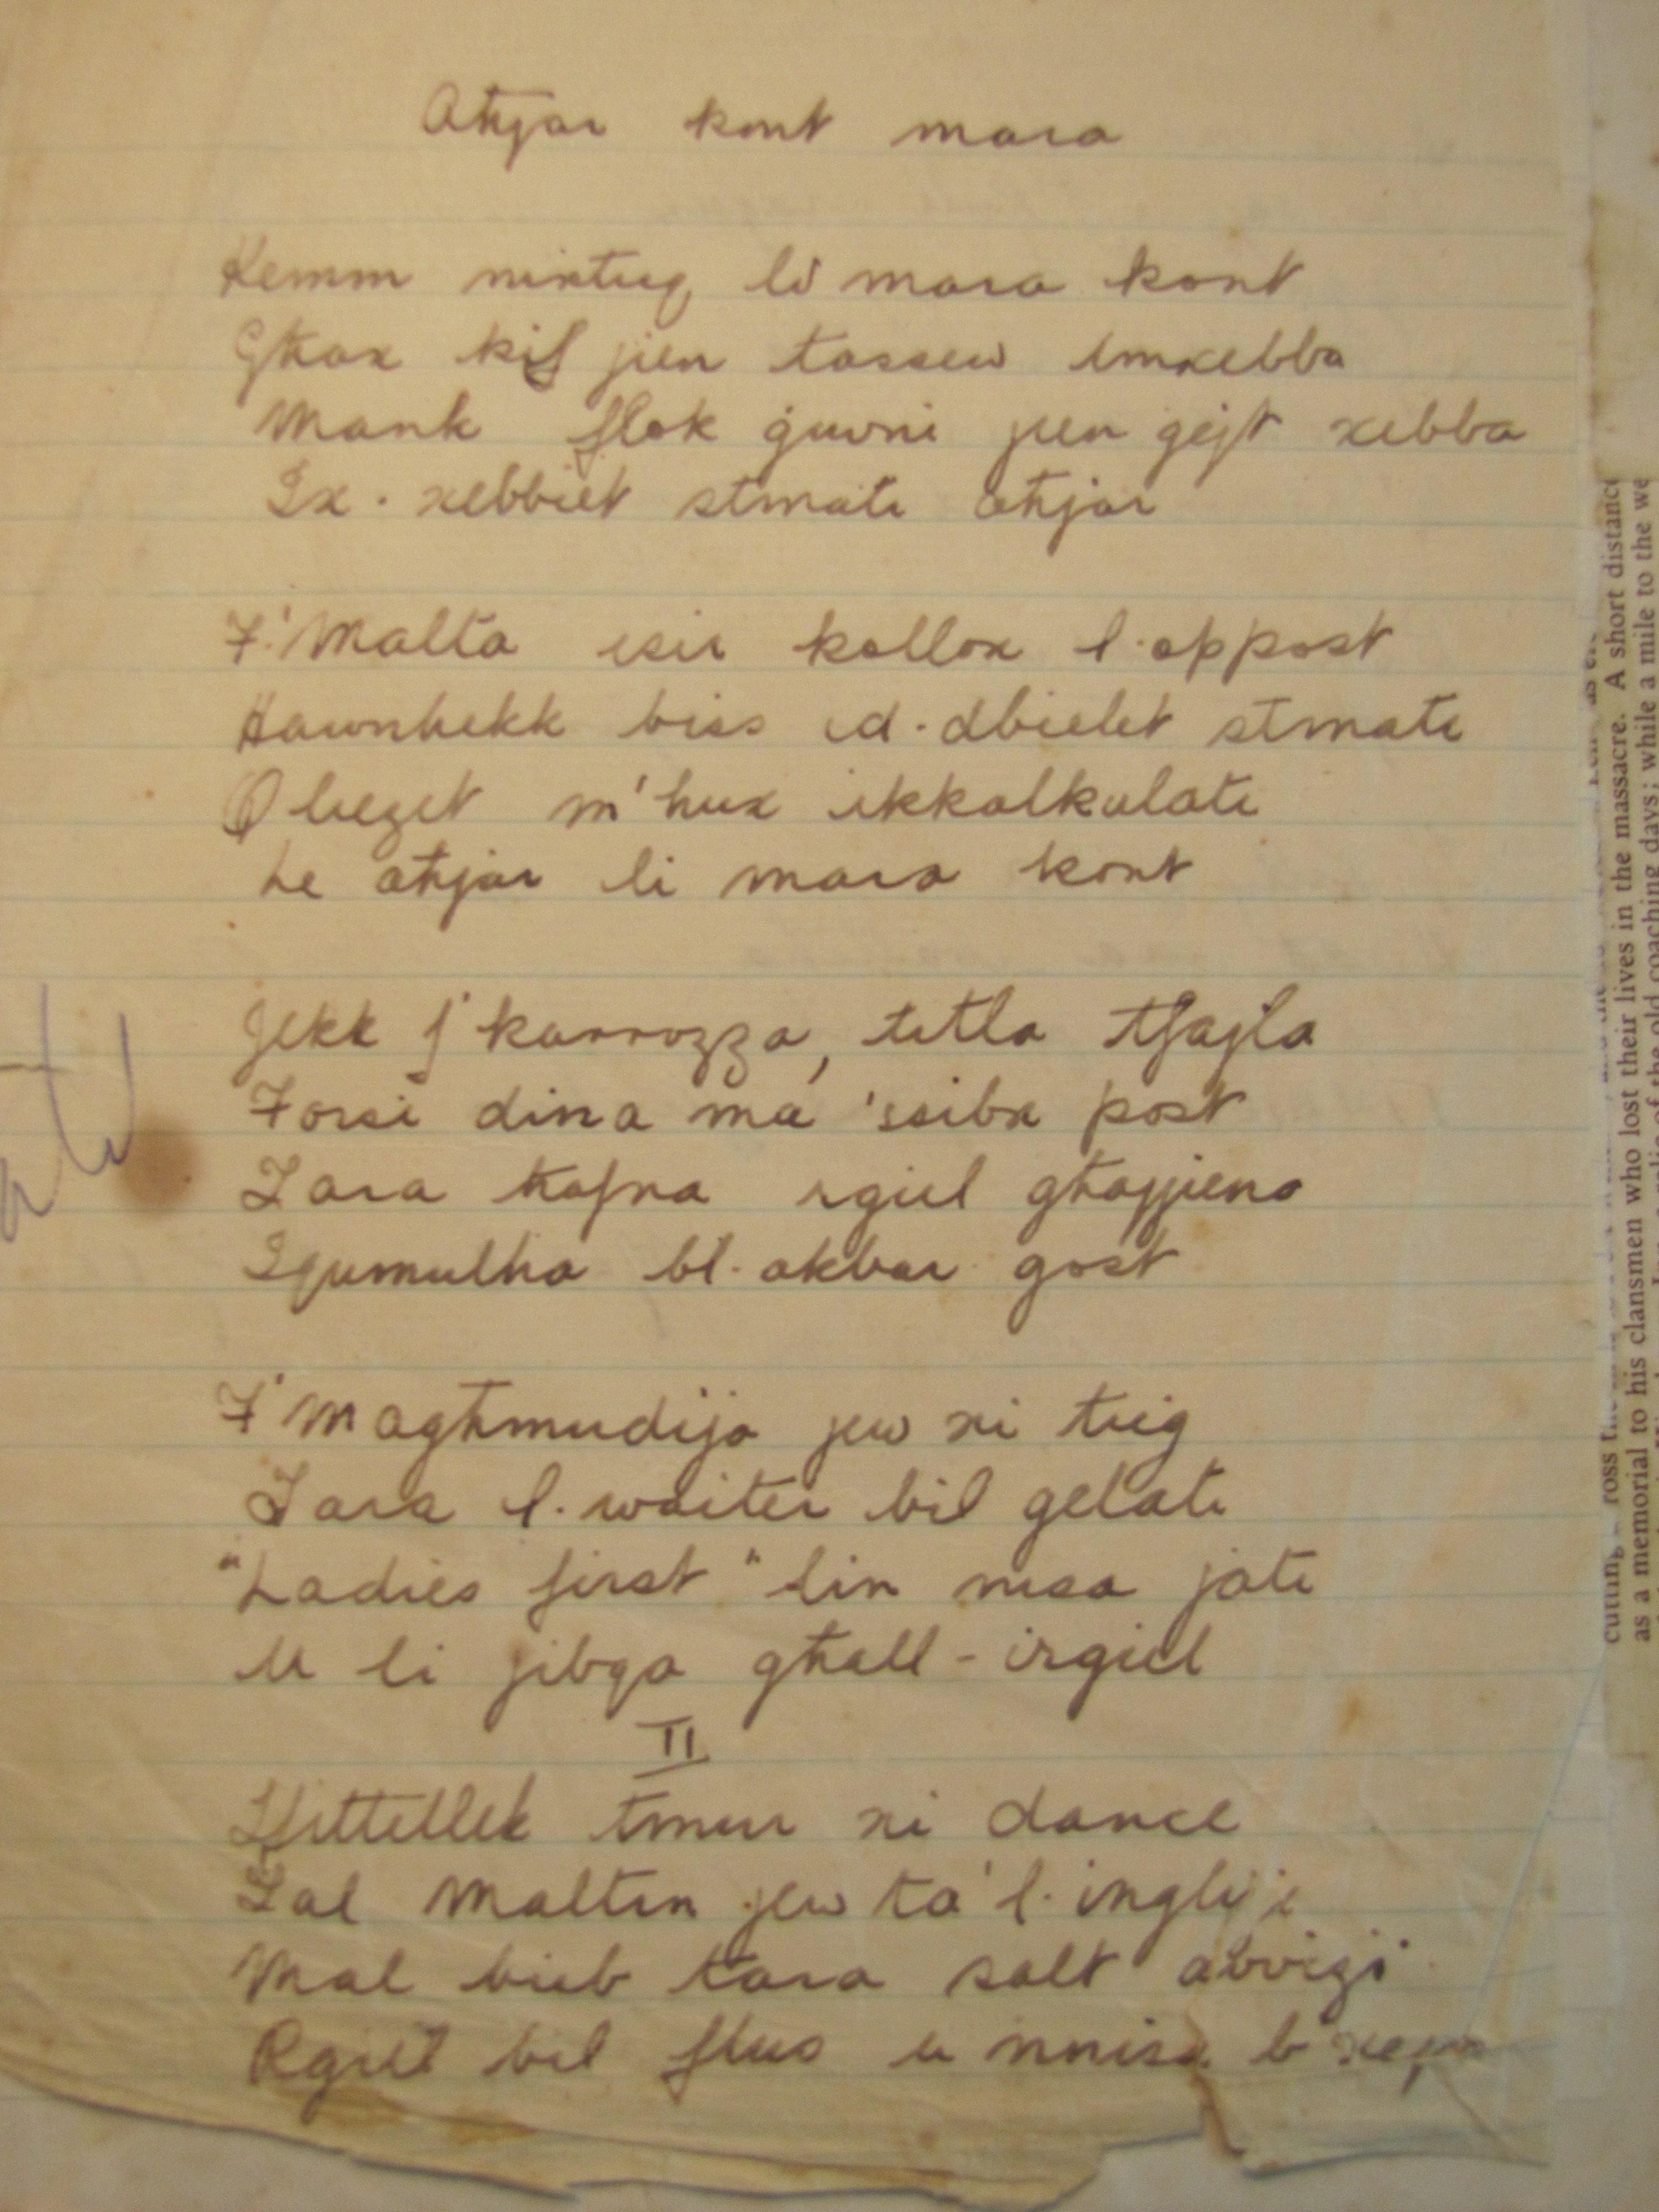 Aħjar kont mara
Kemm nixtieq li mara kont
Għax kif jien tassew imxebba
Mank flok ġuvni jien ġejt xebba
Ix-xebbiet stmati aħjar
F'Malta isir kollox l-oppost
Hawnhekk biss id-dbielet stmati
Qliezet m'hux ikkalkulati
Le aħjar li mara kont
Jekk f'karrozza, titla tfajla
Forsi dina ma 'ssibx post
Tara ħafna rgiel għajjiena
Iqumulha bl-akbar gost
F'Magħmudija jew xi tieġ
Tara l-waiter bil ġelati
"Ladies first" lin nisa jati
U li jibqa għall-irgiel
II
Jittellek tmur xi dance
Tal Maltin jew ta' l-ingliżi
Mal bieb tara salt avviżi
Rgiel bil flus u nnisa b'xejn
cutting
as a memorial to his clansmen who lost their lives in the massacre. A short distance
of the old coaching days; while a mile to the we